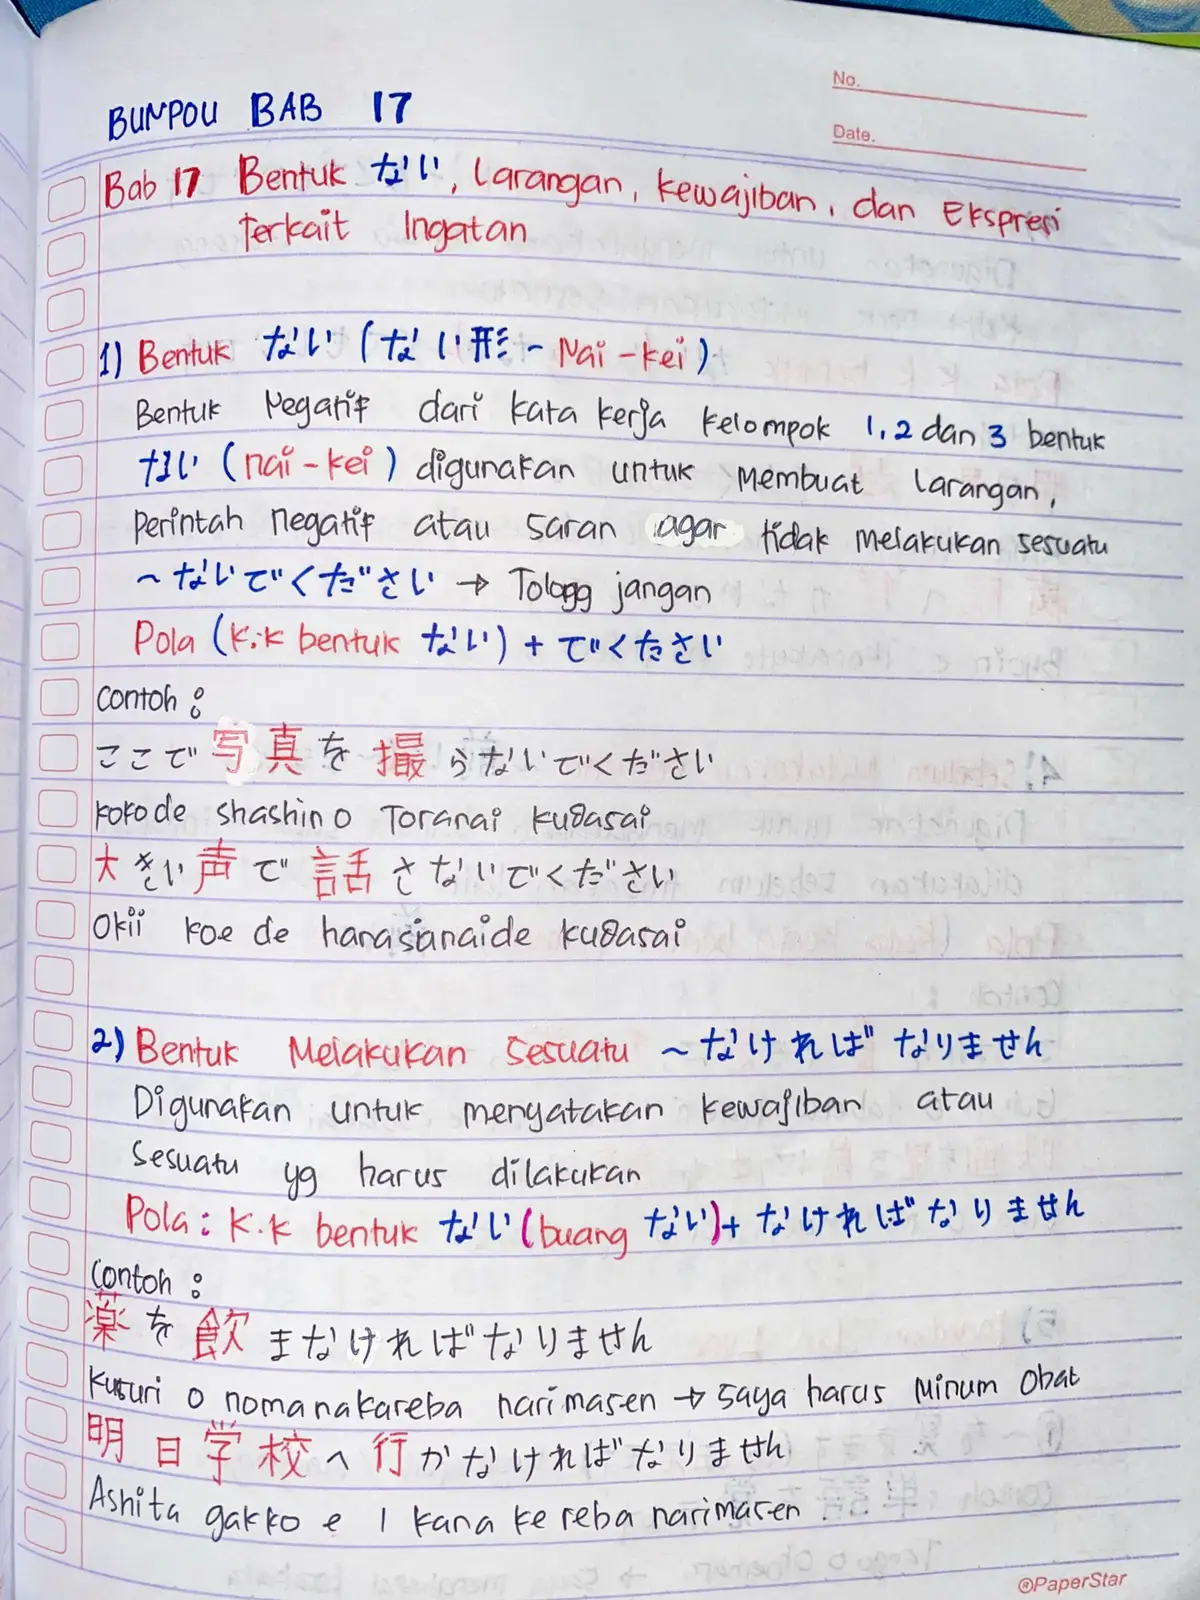 No.
Date.
BUNPOU BAB 17
Bab 17 Bentuk ない, Larangan, Kewajiban, dan Ekspresi
Terkait Ingatan
1) Bentuk ない (ない形 ~ Nai - kei)
Bentuk Negatif dari kata kerja kelompok 1, 2 dan 3 bentuk
ない (nai - kei) digunakan untuk membuat larangan,
perintah negatif atau saran agar tidak melakukan sesuatu
~ ないでください → Tologg jangan
Pola (K.K bentuk ない) + でくたさい
Contoh :
ここで写真を撮らないでください
koko de shashin o Toranai kudasai
大きい声で話さないでください
Okii koe de hanasanaide kudasai
2) Bentuk Melakukan Sesuatu ~ なければなりません
Digunakan untuk menyatakan kewajiban atau
Sesuatu yg harus dilakukan
Pola : K.K bentuk ない (buang ない) + なければなりません
Contoh :
薬を飲まなければなりません
Kusuri o nomanakareba narimasen → saya harus Minum Obat
明日学校へ行かなければなりません
Ashita gakko e I kana ke reba narimasen
®PaperStar